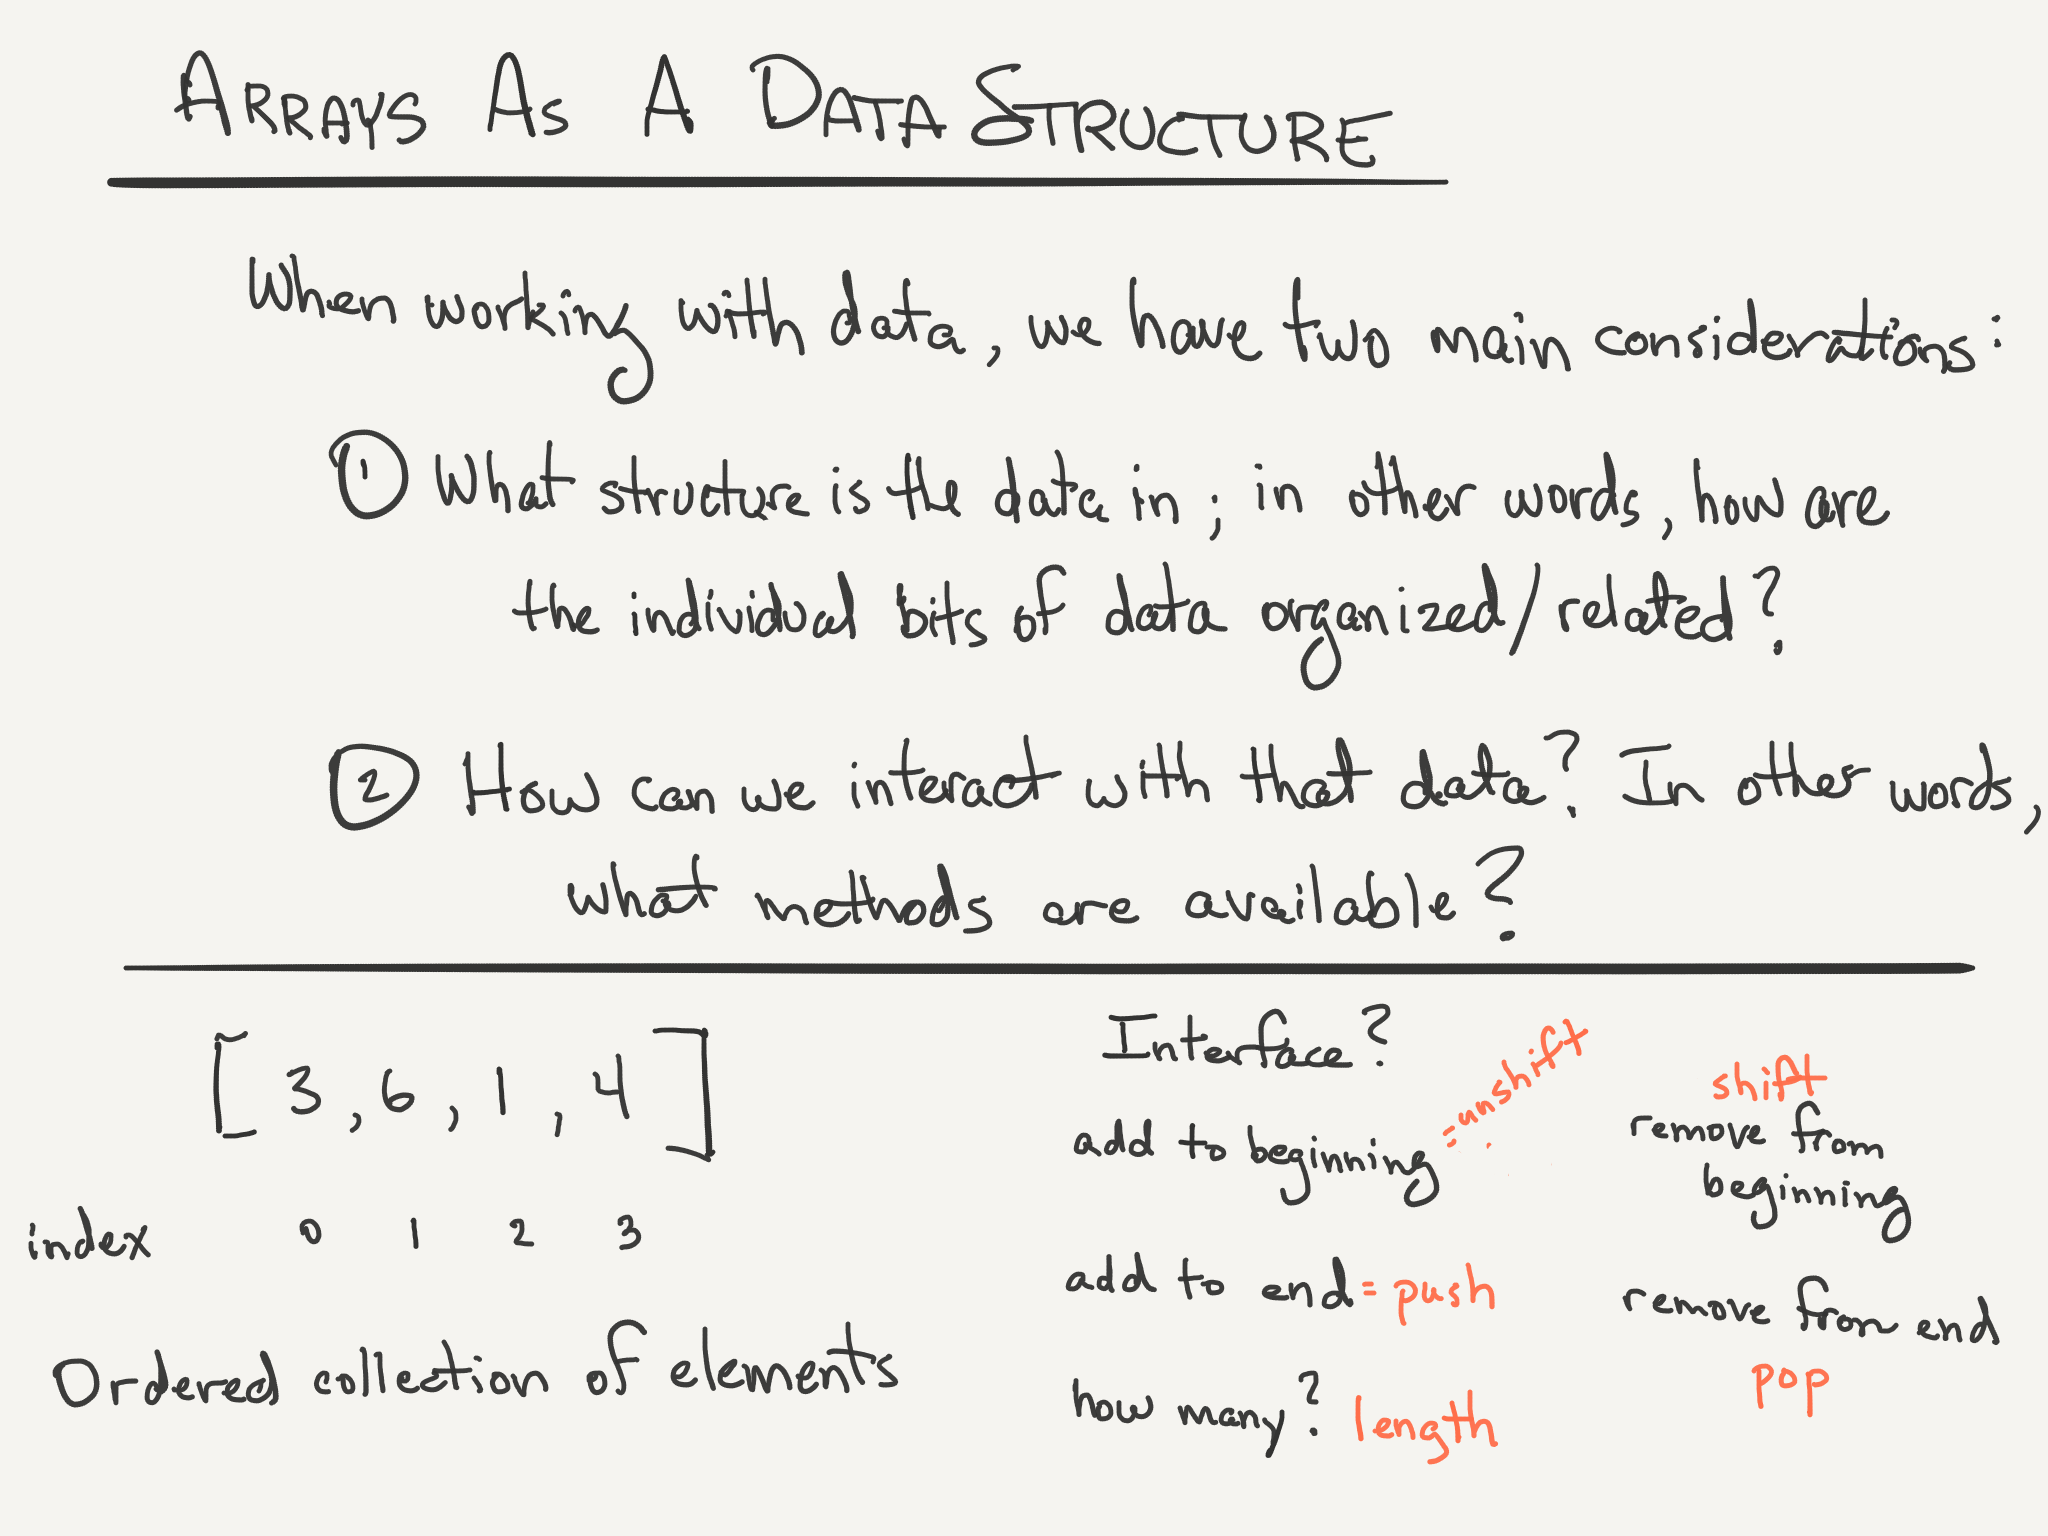 ARRAYS AS A DATA STRUCTURE
When working with data, we have two main considerations:
1 What structure is the data in; in other words, how are
the individual bits of data organized/related?
2 How can we interact with that data? In other words,
what methods are available?
[3,6,1,4]
index 0 1 2 3
Ordered collection of elements
Interface?
add to beginning = unshift
add to end = push
how many? length
shift
remove from
beginning
remove from end
pop